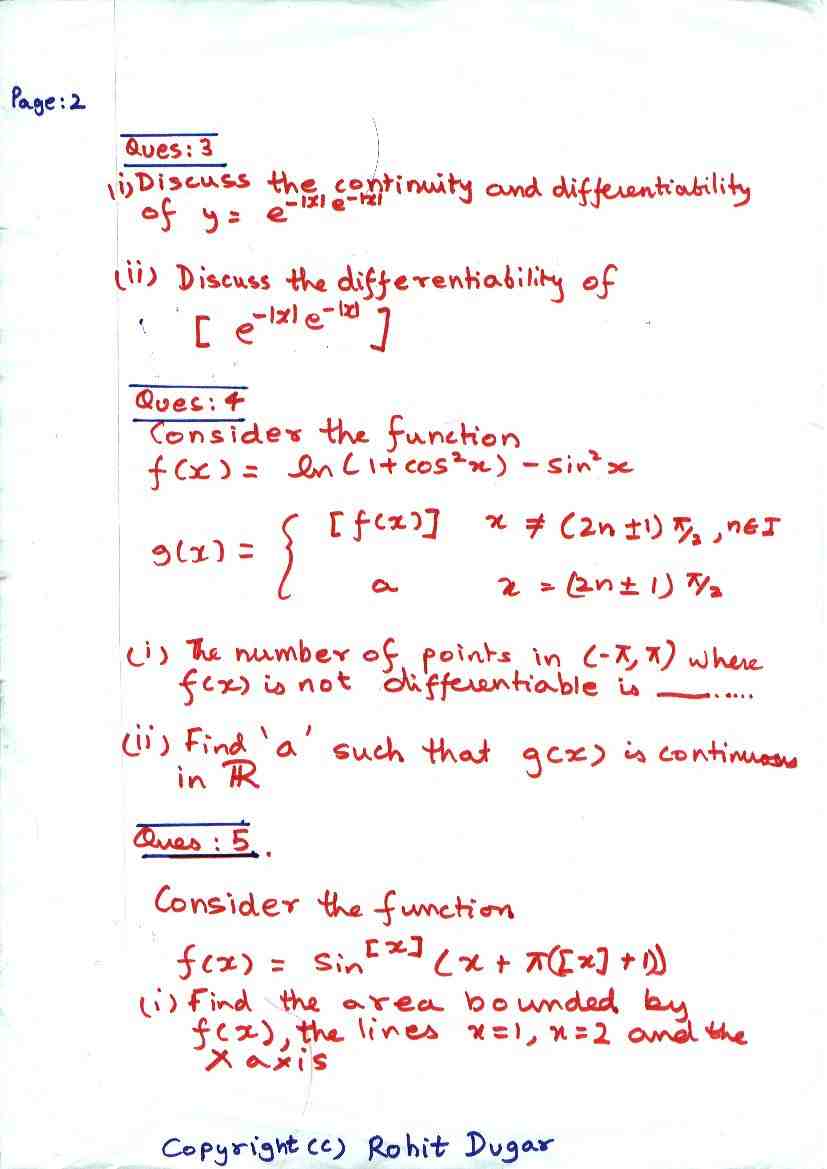 Page: 2
Ques: 3
(i) Discuss the continuity and differentiability
of y = e^{-|x| e^{-|x|}}
(ii) Discuss the differentiability of
[ e^{-|x| e^{-|x|}} ]
Ques: 4
Consider the function
f(x) = ln(1+cos²x) - sin²x
g(x) = { [f(x)] x ≠ (2n ±1) π/2, n∈I
a x = (2n ± 1) π/2
(i) The number of points in (-π, π) where
f(x) is not differentiable is ———.....
(ii) Find 'a' such that g(x) is continuous
in ℝ
Ques: 5.
Consider the function
f(x) = sin^{[x]} (x + π([x] + 1))
(i) Find the area bounded by
f(x), the lines x=1, x=2 and the
X axis
Copyright (c) Rohit Dugar